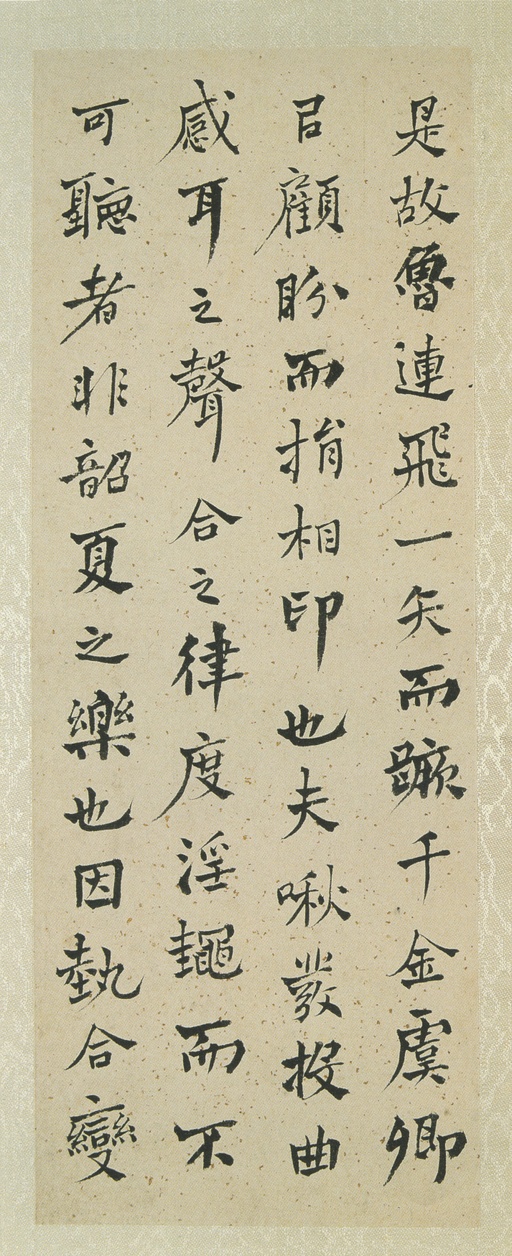 是故魯連飛一矢而蹶千金虞卿
㠯顧眄而捐相印也夫啾發投曲
感耳之聲合之律度淫䵷而不
可聽者非韶夏之樂也因埶合變